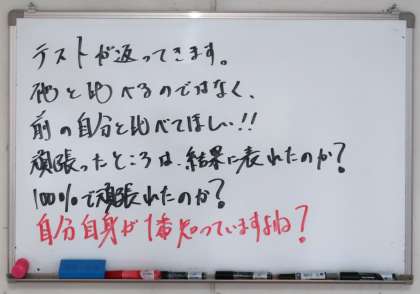 テストが返ってきます。
他と比べるのではなく、
前の自分と比べてほしい!!
頑張ったところは、結果に表れたのか?
100%で頑張れたのか?
自分自身が1番知っていますよね?